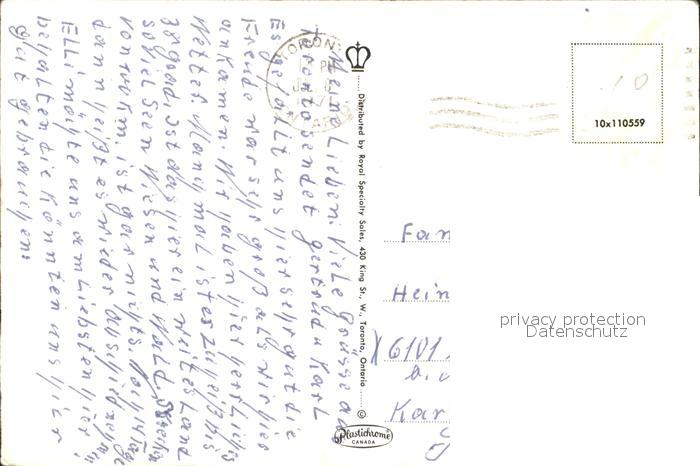 Meine Lieben. Viele Grüsse aus
Toronto sendet Gertrud u Karl
Es gefällt uns hier sehr gut die
Freude war sehr groß als wir hier
ankamen. Wir haben hier herrliches
Wetter. Manchmal ist es zu heiß bis
38 grad. Ist das hier ein weites Land
soviel Seen Wiesen und Wald.
ist gar nichts. Noch 14 Tage
dann heißt es wieder
Elli möchte uns am liebsten hier
behalten die könnten uns hier
gut gebrauchen.
TORONTO
Distributed by Royal Specialty Sales, 430 King St., W., Toronto, Ontario
©
Plastichrome
CANADA
10x110559
Fam
Hein
6101
Kar
privacy protection
Datenschutz